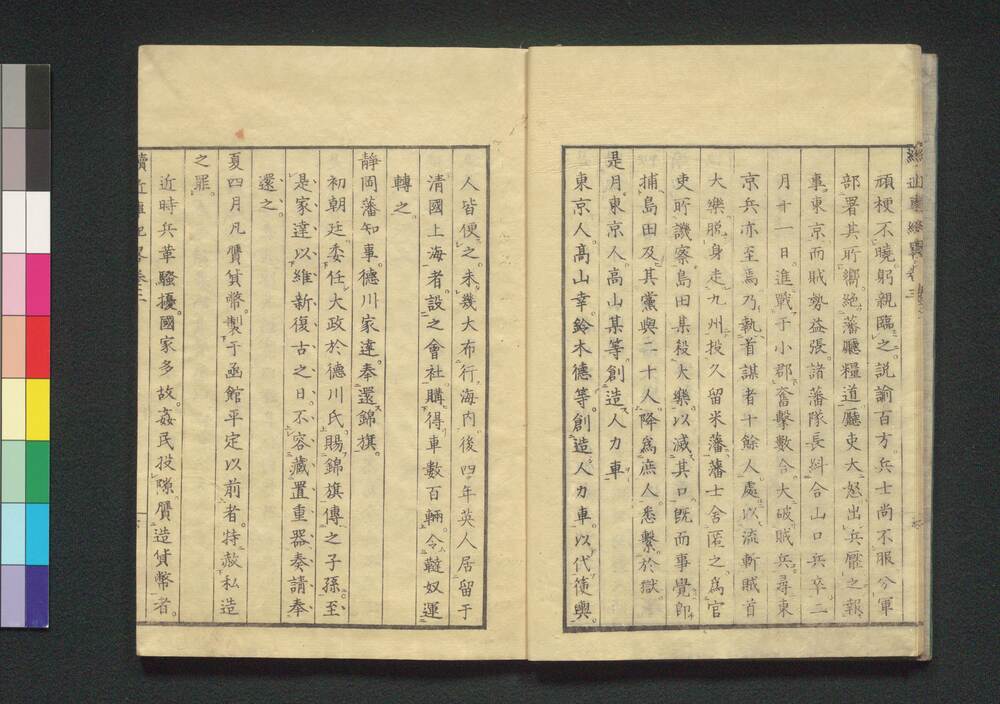 頑梗不曉躬親臨之説諭百方兵士尚不服分軍
部署其所嚮絶藩廳糧道廳吏大怒出兵壓之報
事東京而賊勢益張諸藩隊長糾合山口兵卒二
月十一日進戰于小郡奮擊數合大破賊兵尋東
京兵亦至焉乃執首謀者十餘人處以流斬賊首
大樂脱身走九州投久留米藩藩士舍匿之爲官
吏所譏察島田某殺大樂以滅其口既而事覺卽
捕島田及其黨與二十人降爲庶人悉繫於獄
是月東京人高山某等創造人力車
東京人高山幸鈴木德等創造人力車以代徒輿
人皆便之未幾大布行海内後四年英人居留于
清國上海者設之會社購得車數百輛令韃奴運
轉之
靜岡藩知事德川家達奉還錦旗
初朝廷委任大政於德川氏賜錦旗傳之子孫至
是家達以維新復古之日不容藏置重器奏請奉
還之
夏四月凡贋貨幣製于函館平定以前者特赦私造
之罪
近時兵革騷擾國家多故姦民投隙贋造貨幣者